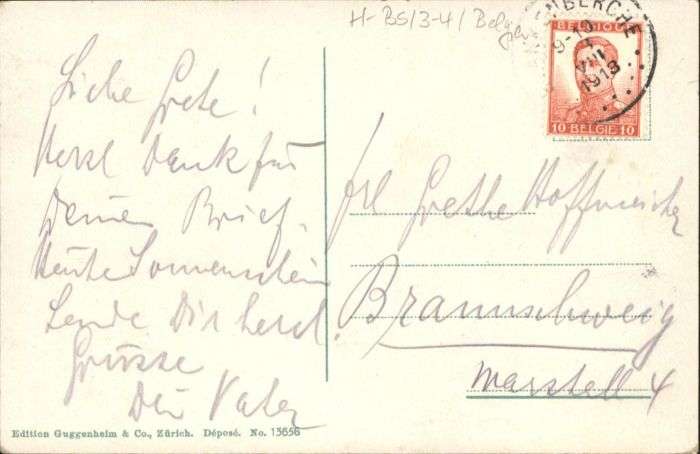 H-BS/3-4/Belgien
BERCHE
9-10
VIII
1913
BELGIQUE
10 BELGIË 10
Liebe Grete!
Herzl Dank für
Deinen Brief.
Heute Sonnenschein
Sende Dir herzl.
Grüsse
Dein Vater
Frl Grethe Hoffmeister
Braunschweig
Marstall 4
Edition Guggenheim & Co., Zürich. Déposé. No. 13656